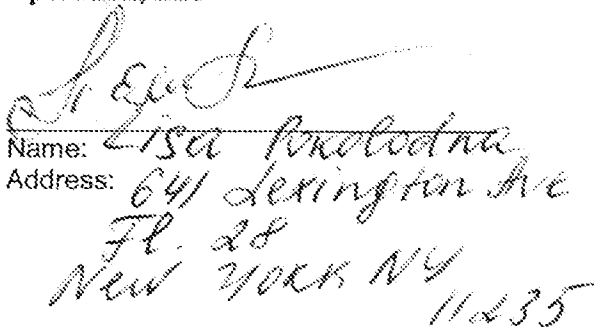 Name: Lisa
Address: 641 Lexington Ave
Fl. 28
New York NY
11235